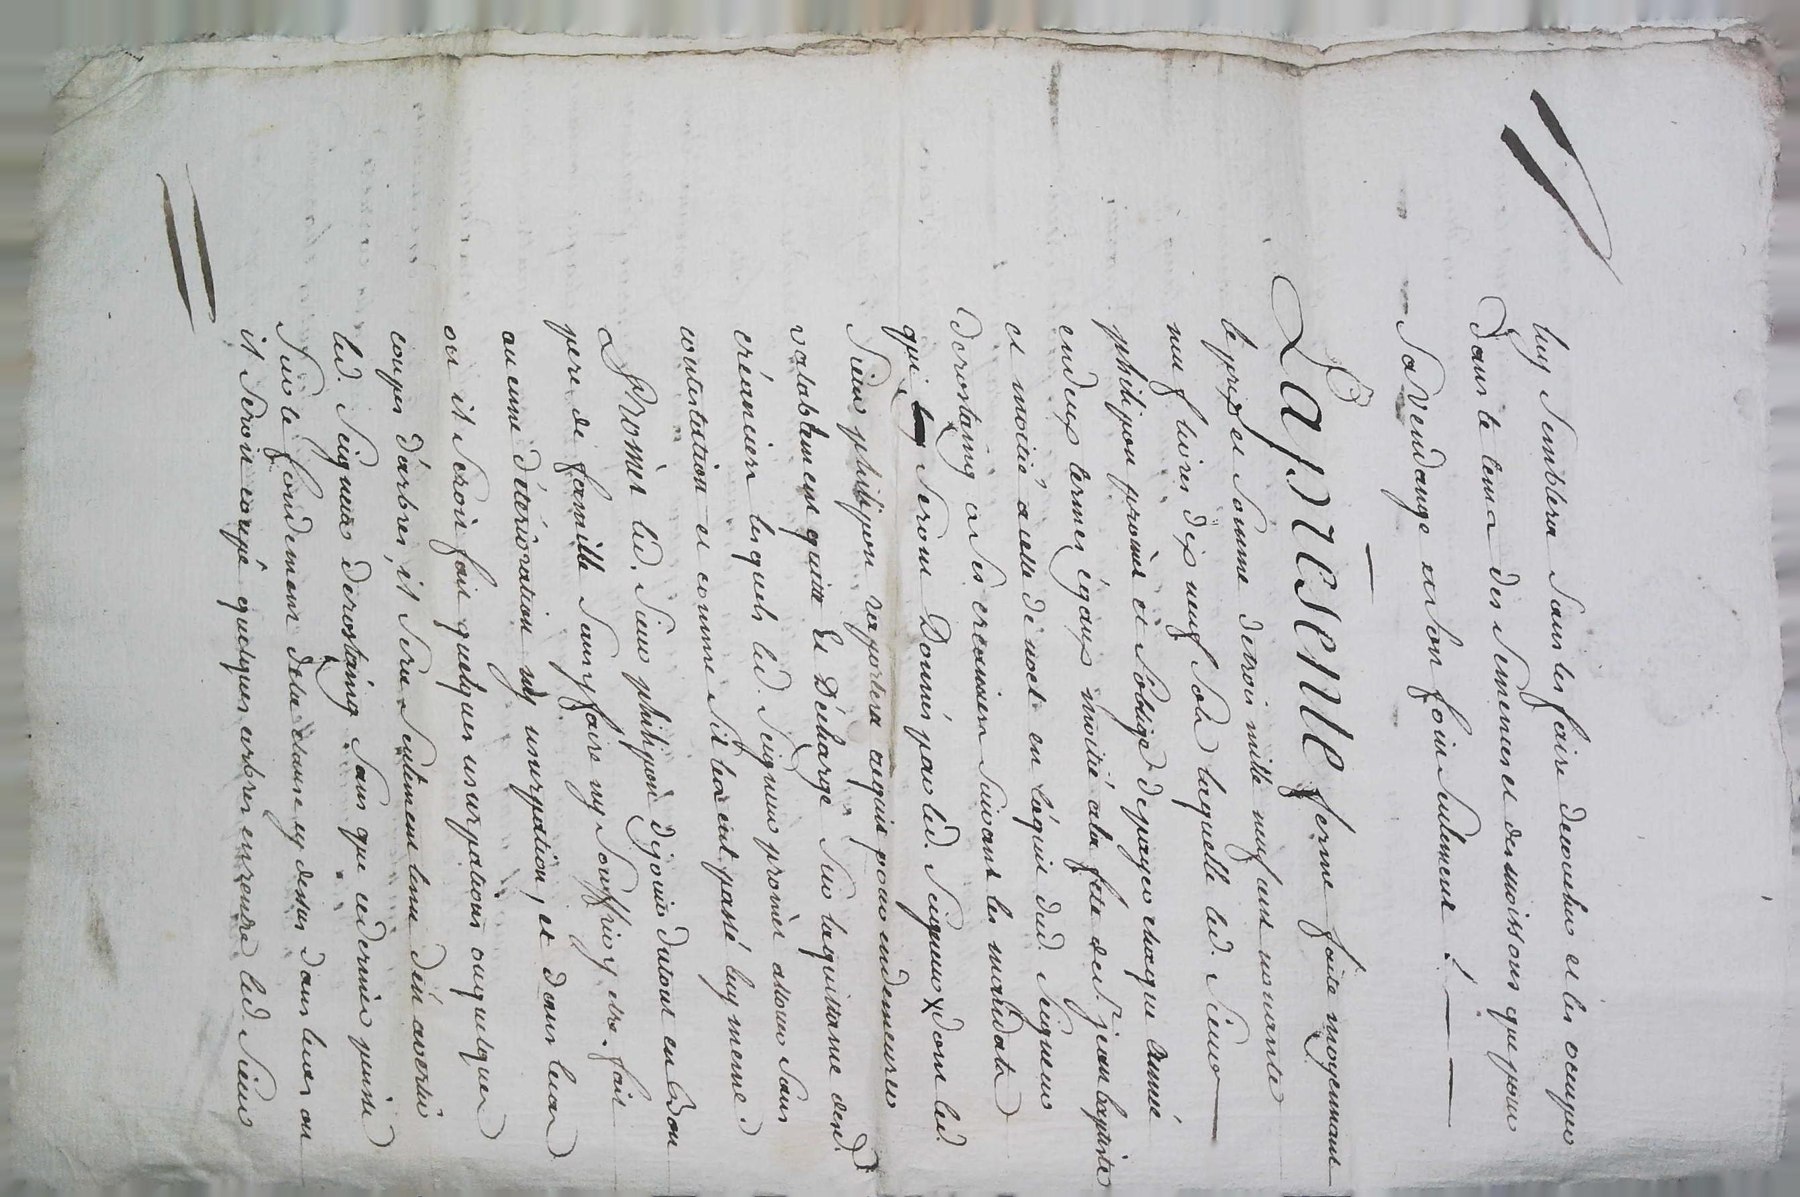 luy Semblera Sans les faire devoetir et les occuper
Dans le tems des Semences et des moissons que pour
Sa Vendange et Son foin Seulement ! —
Lapresente ferme faite moyennant
le prix et Somme de trois mille neuf cent nonante
neuf livres dix neuf Sols laquelle led. Sieur
philipon promet et Soblige de payer chaque année
en deux termes égaux moitié ala fete de St jean baptiste
et moitié a celle de noel en l'aquit dud. Seigneur
derostaing a Ses creanciers Suivant les mandats
qui Seront Donnés par led. Seigneur x dont led.
Sieur philipon raportera aquit pour en demeurer
valablement quitte et Décharge Sur la quittance desd.
créanciers lesquels led. Seigneur promet allouer Sans
contestation et comme Sil les eut passé luy meme.
Promet led. Sieur philipon de jouir du tout en bon
pere de famille Sans y faire ny Souffrir y etre fait
aucune déterioration ny usurpation, et dans le cas
ou il Seroit fait quelques usurpations ou quelques
coupes d'arbres, il Sera Seulement tenu d'en avertir
led. Seigneur derostaing Sans que ce dernier puisse
Sur le fondement de la clause cy dessus dans le cas ou
il Seroit coupé quelques arbres en rendre led. Sieur